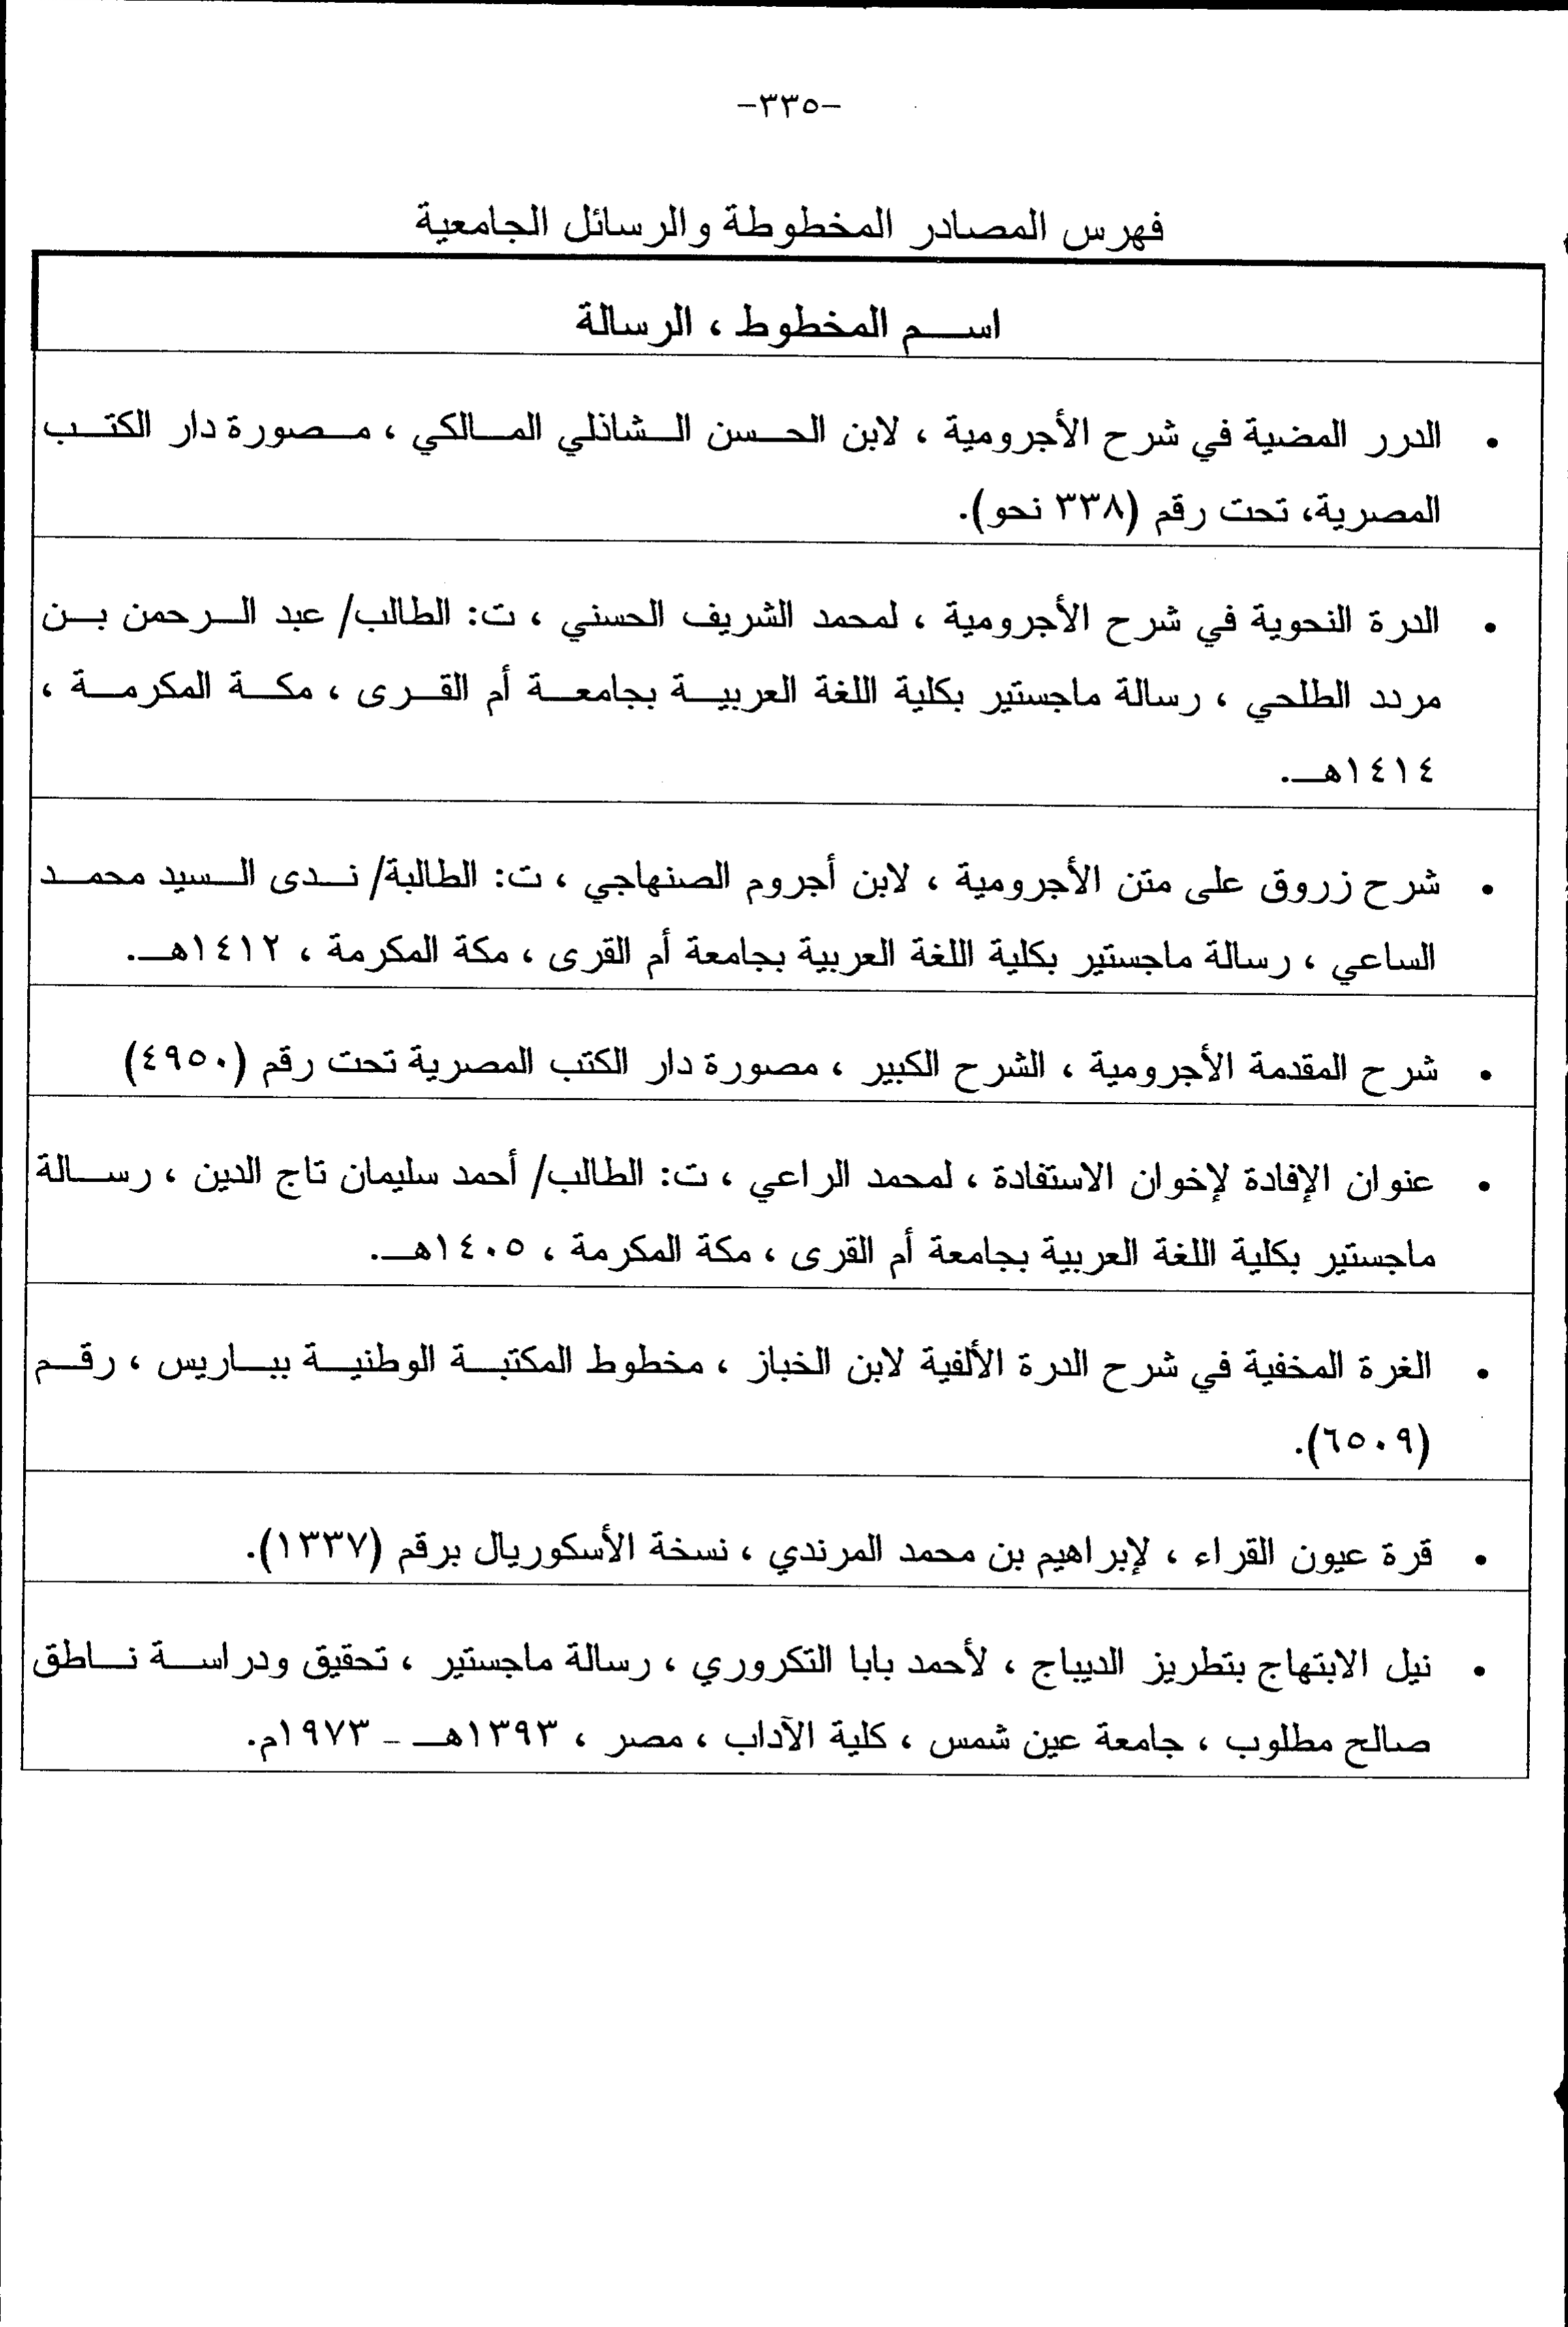 -٣٣٥-
فهرس المصادر المخطوطة والرسائل الجامعية
اسم المخطوط ، الرسالة
• الدرر المضية في شرح الأجرومية ، لابن الحسن الشاذلي المالكي ، مصورة دار الكتب
المصرية، تحت رقم (٣٣٨ نحو).
• الدرة النحوية في شرح الأجرومية ، لمحمد الشريف الحسني ، ت: الطالب/ عبد الرحمن بن
مردد الطلحي ، رسالة ماجستير بكلية اللغة العربية بجامعة أم القرى ، مكة المكرمة ،
١٤١٤هـ.
• شرح زروق على متن الأجرومية ، لابن أجروم الصنهاجي ، ت: الطالبة/ ندى السيد محمد
الساعي ، رسالة ماجستير بكلية اللغة العربية بجامعة أم القرى ، مكة المكرمة ، ١٤١٢هـ.
• شرح المقدمة الأجرومية ، الشرح الكبير ، مصورة دار الكتب المصرية تحت رقم (٤٩٥٠)
• عنوان الإفادة لإخوان الاستفادة ، لمحمد الراعي ، ت: الطالب/ أحمد سليمان تاج الدين ، رسالة
ماجستير بكلية اللغة العربية بجامعة أم القرى ، مكة المكرمة ، ١٤٠٥هـ.
• الغرة المخفية في شرح الدرة الألفية لابن الخباز ، مخطوط المكتبة الوطنية بباريس ، رقم
(٦٥٠٩).
• قرة عيون القراء ، لإبراهيم بن محمد المرندي ، نسخة الأسكوريال برقم (١٣٣٧).
• نيل الابتهاج بتطريز الديباج ، لأحمد بابا التكروري ، رسالة ماجستير ، تحقيق ودراسة ناطق
صالح مطلوب ، جامعة عين شمس ، كلية الآداب ، مصر ، ١٣٩٣هـ - ١٩٧٣م.